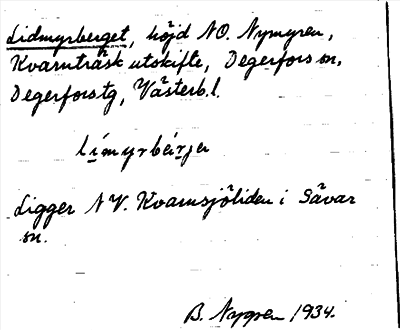 Lidmyrberget, höjd NO. Nymyren,
Kvarnträsk utskifte, Degerfors sn,
Degerfors tg, Västerb. l.
límyrbèrjer
Ligger NV. Kvarnsjöliden i Sävar
sn.
B. Nygren 1934.